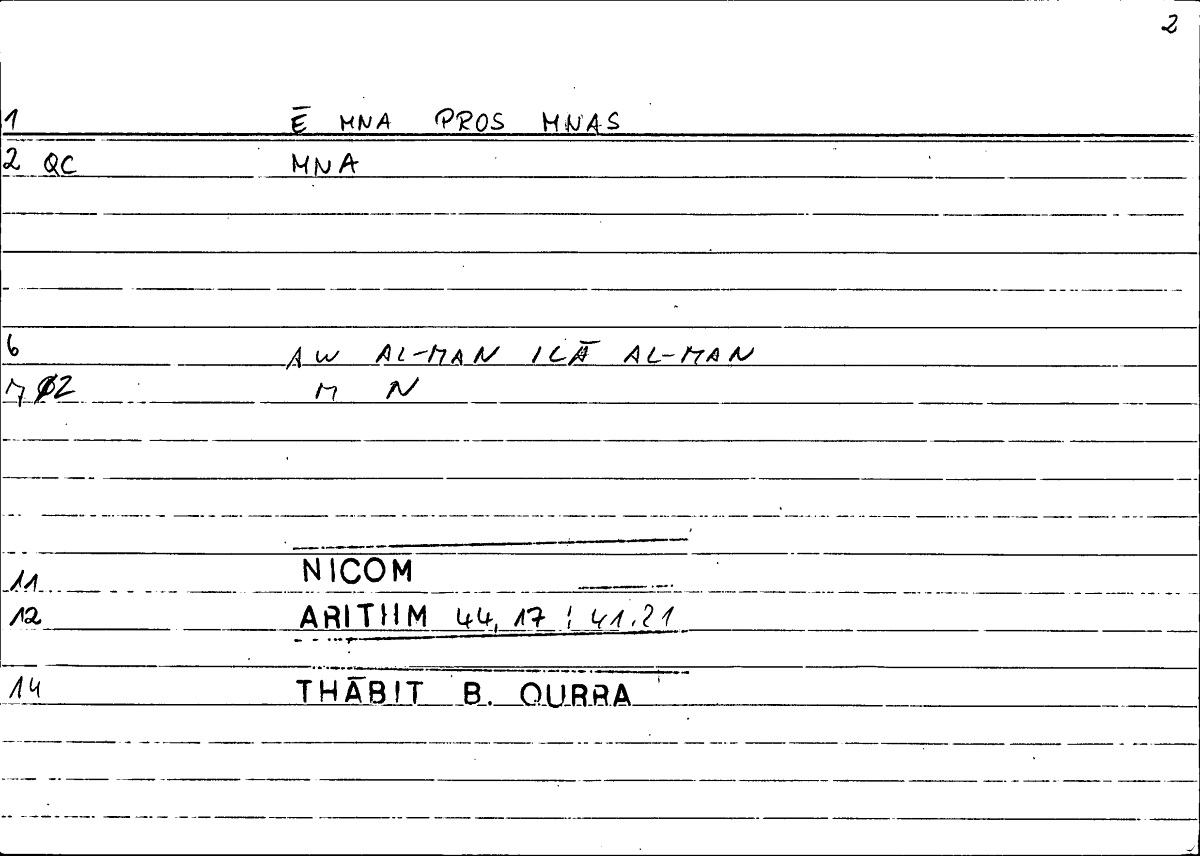 2
1 Ē MNA PROS MNAS
2 QC MNA
6 AW AL-MAN ILĀ AL-MAN
7 M N
11 NICOM
12 ARITHM 44, 17 ; 41.21
14 THĀBIT B. QURRA